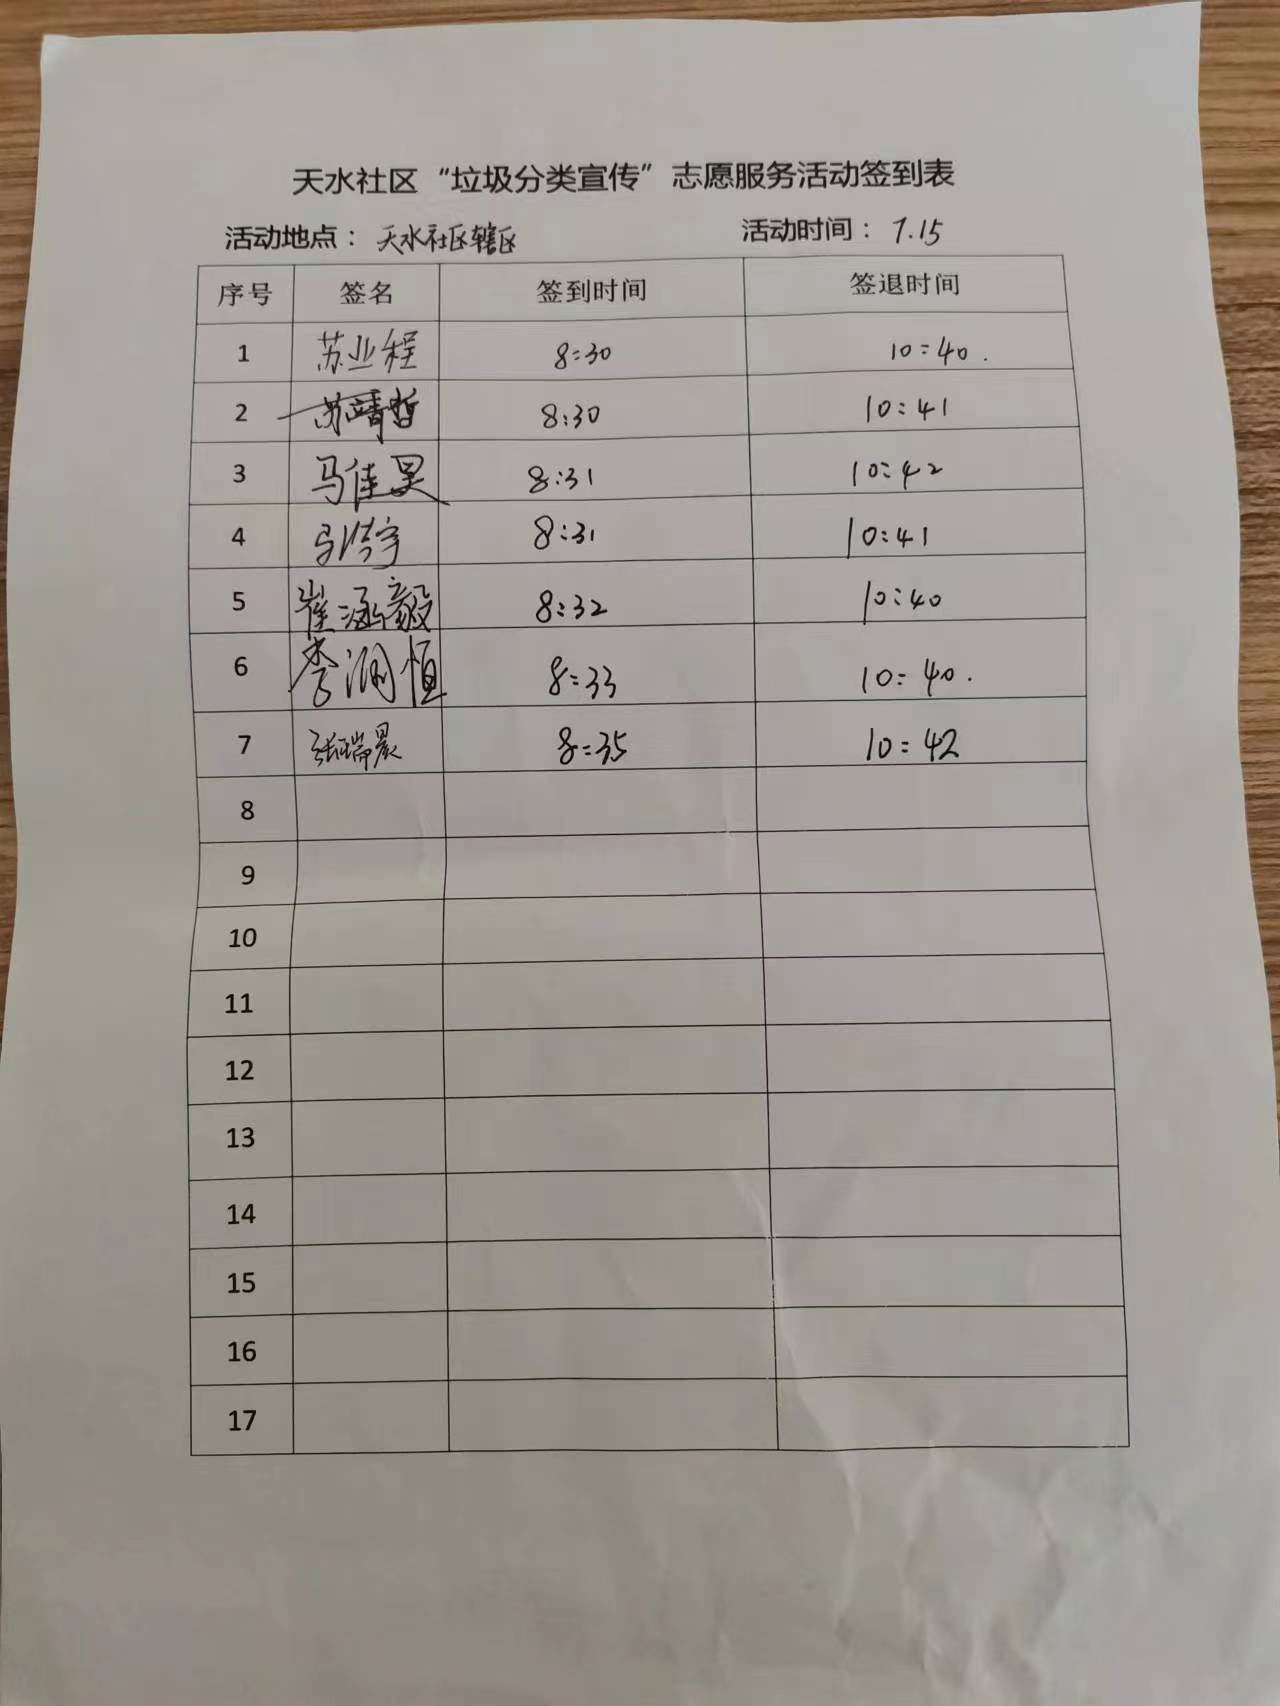 天水社区“垃圾分类宣传”志愿服务活动签到表
活动地点： 天水社区辖区 活动时间： 7.15
序号 签名 签到时间 签退时间
1 苏业程 8:30 10:40.
2 苏靖哲 8:30 10:41
3 马佳昊 8:31 10:42
4 马 宇 8:31 10:41
5 崔涵毅 8:32 10:40
6 李润恒 8:33 10:40.
7 张瑞晨 8:35 10:42
8
9
10
11
12
13
14
15
16
17